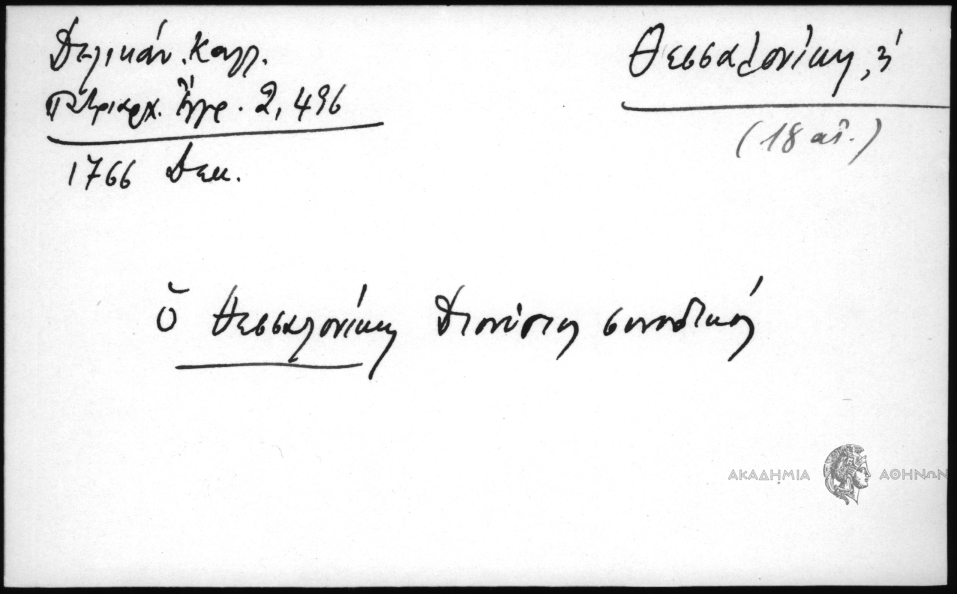 Δελικάν. Καλλ.
Πατριαρχ. Ἔγγρ. 2, 496
1766 Δεκ.
Θεσσαλονίκη, ἡ
(18 αἰ.)
ὁ Θεσσαλονίκης Διονύσιος συνοδικός
ΑΚΑΔΗΜΙΑ ΑΘΗΝΩΝ